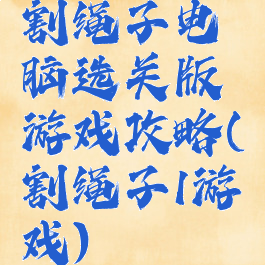 割绳子电
脑选关版
游戏攻略(
割绳子1游
戏)